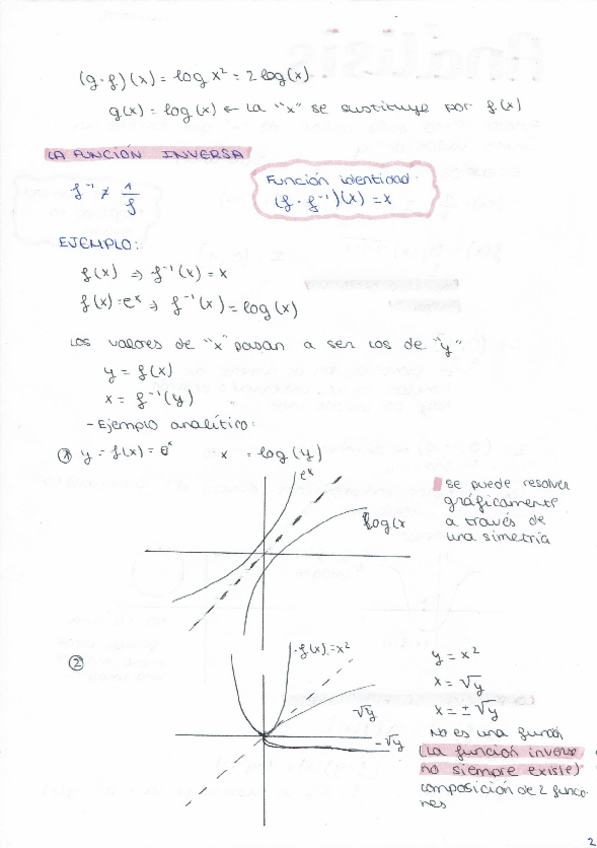 (g·f)(x) = log x² = 2 log(x)
g(x) = log(x) ← La "x" se sustituye por f(x)
LA FUNCIÓN INVERSA
f⁻¹ ≠ 1/f
Función identidad.
(f·f⁻¹)(x) = x
EJEMPLO:
f(x) ⇒ f⁻¹(x) = x
f(x) = eˣ ⇒ f⁻¹(x) = log(x)
Los valores de "x" pasan a ser los de "y"
y = f(x)
x = f⁻¹(y)
- Ejemplo analítico:
① y = f(x) = eˣ x = log(y)
eˣ
log(x
se puede resolver
gráficamente
a través de
una simetría
②
f(x) = x²
√y
-√y
y = x²
x = √y
x = ± √y
No es una funci
(La función inversa
no siempre existe)
composición de 2 funcio-
nes
2